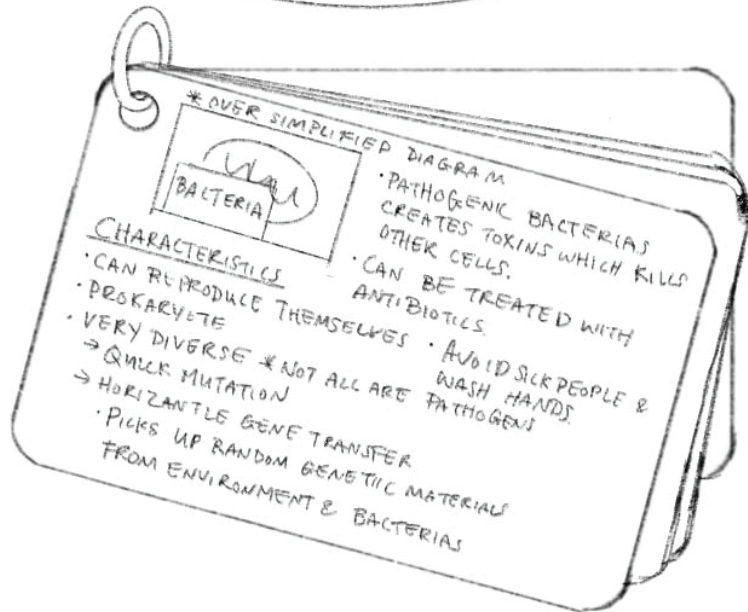 * OVER SIMPLIFIED DIAGRAM
BACTERIA
• PATHOGENIC BACTERIAS
CREATES TOXINS WHICH KILLS
OTHER CELLS.
• CAN BE TREATED WITH
ANTIBIOTICS.
• AVOID SICK PEOPLE &
WASH HANDS.
CHARACTERISTICS
• CAN REPRODUCE THEMSELVES
• PROKARYOTE
• VERY DIVERSE * NOT ALL ARE PATHOGENS
→ QUICK MUTATION
→ HORIZANTLE GENE TRANSFER
• PICKS UP RANDOM GENETIC MATERIALS
FROM ENVIRONMENT & BACTERIAS